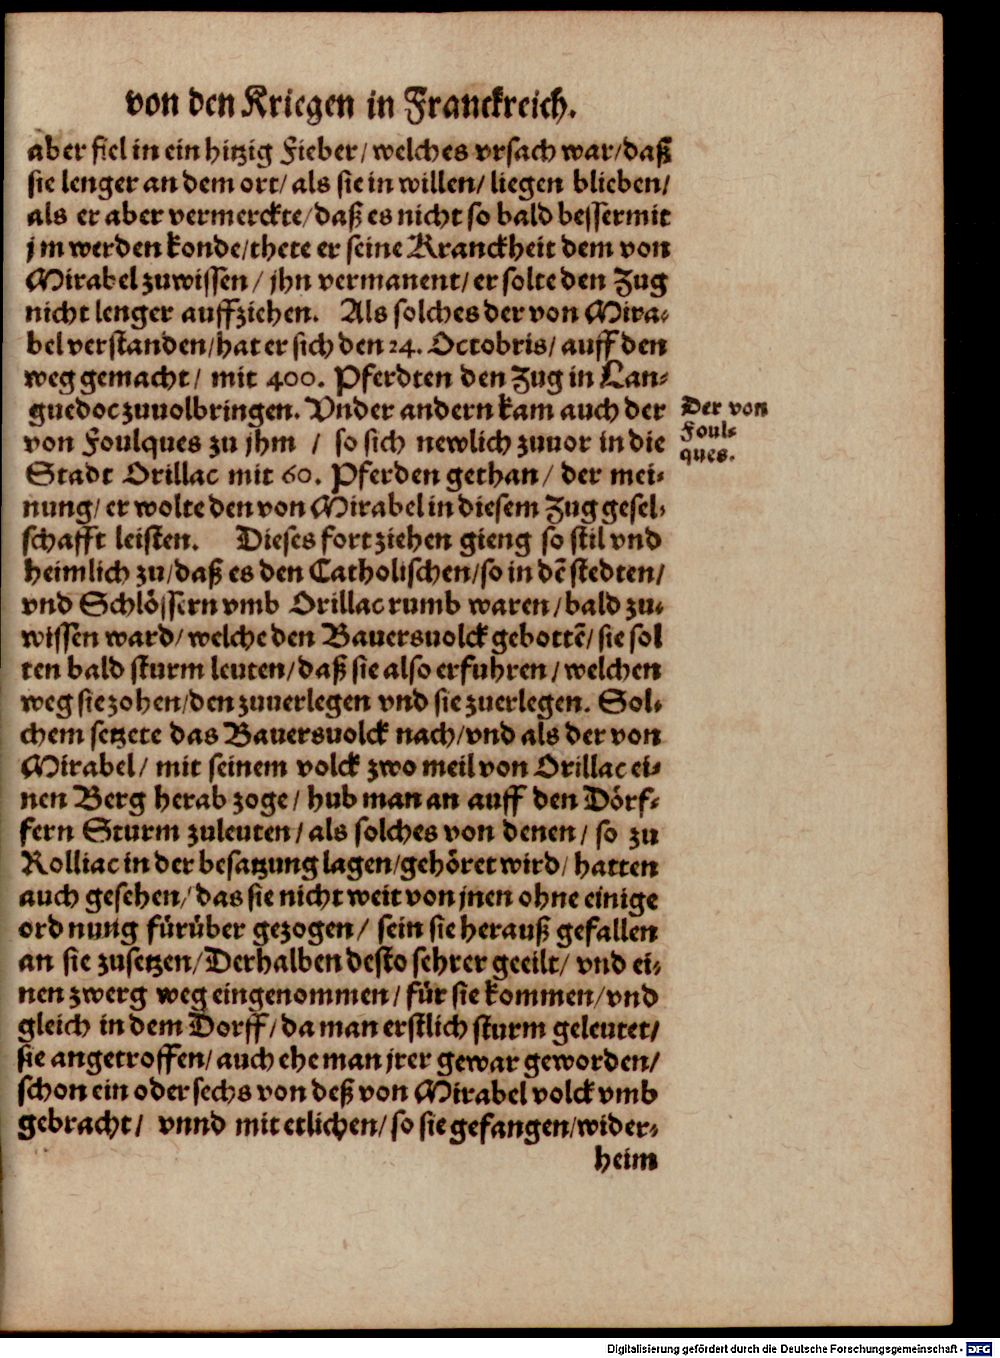 von den Kriegen in Franckreich.
aber fiel in ein hitzig Fieber/ welches vrsach war/ daß
sie lenger an dem ort/ als sie in willen/ liegen blieben/
als er aber vermerckte/ daß es nicht so bald besser mit
jm werden konde/ thete er seine Kranckheit dem von
Mirabel zuwissen/ jhn vermanent/ er solte den Zug
nicht lenger auffziehen. Als solches der von Mira-
bel verstanden/ hat er sich den 24. Octobris/ auff den
weg gemacht/ mit 400. Pferdten den Zug in Lan-
guedoc zuuolbringen. Vnder andern kam auch der
Der von
Foul-
ques.
von Foulques zu jhm / so sich newlich zuuor in die
Stadt Orillac mit 60. Pferden gethan/ der mei-
nung/ er wolte den von Mirabel in diesem Zug gesel-
schafft leisten. Dieses fort ziehen gieng so stil vnd
heimlich zu/ daß es den Catholischen/ so in dē stedten/
vnd Schlössern vmb Orillac rumb waren/ bald zu-
wissen ward/ welche den Bauersuolck gebottē/ sie sol
ten bald sturm leuten/ daß sie also erfuhren/ welchen
weg sie zohen/ den zuuerlegen vnd sie zuerlegen. Sol-
chem setzete das Bauersuolck nach/ vnd als der von
Mirabel/ mit seinem volck zwo meil von Orillac ei-
nen Berg herab zoge/ hub man an auff den Dörf-
fern Sturm zuleuten/ als solches von denen/ so zu
Rolliac in der besatzung lagen/ gehöret wird/ hatten
auch gesehen/ das sie nicht weit von jnen ohne einige
ordnung fürüber gezogen/ sein sie herauß gefallen
an sie zusetzen/ Derhalben desto sehrer geeilt/ vnd ei-
nen zwerg weg eingenommen/ für sie kommen/ vnd
gleich in dem Dorff/ da man erstlich sturm geleutet/
sie angetroffen/ auch ehe man jrer gewar geworden/
schon ein oder sechs von deß von Mirabel volck vmb
gebracht/ vnnd mit etlichen/ so sie gefangen/ wider-
heim
Digitalisierung gefördert durch die Deutsche Forschungsgemeinschaft - DFG